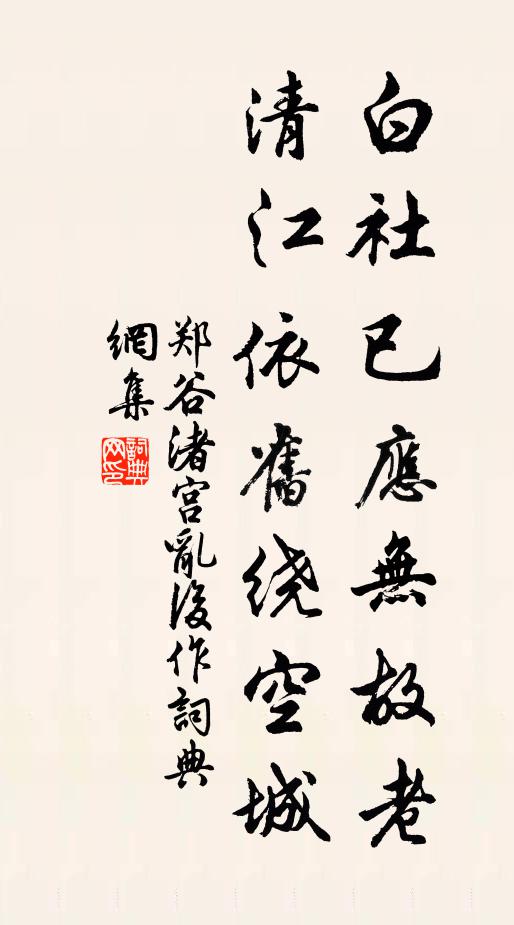 白社已應無故老
清江依舊绕空城
郑谷渚宫亂後作詞典
網集
詞典网印